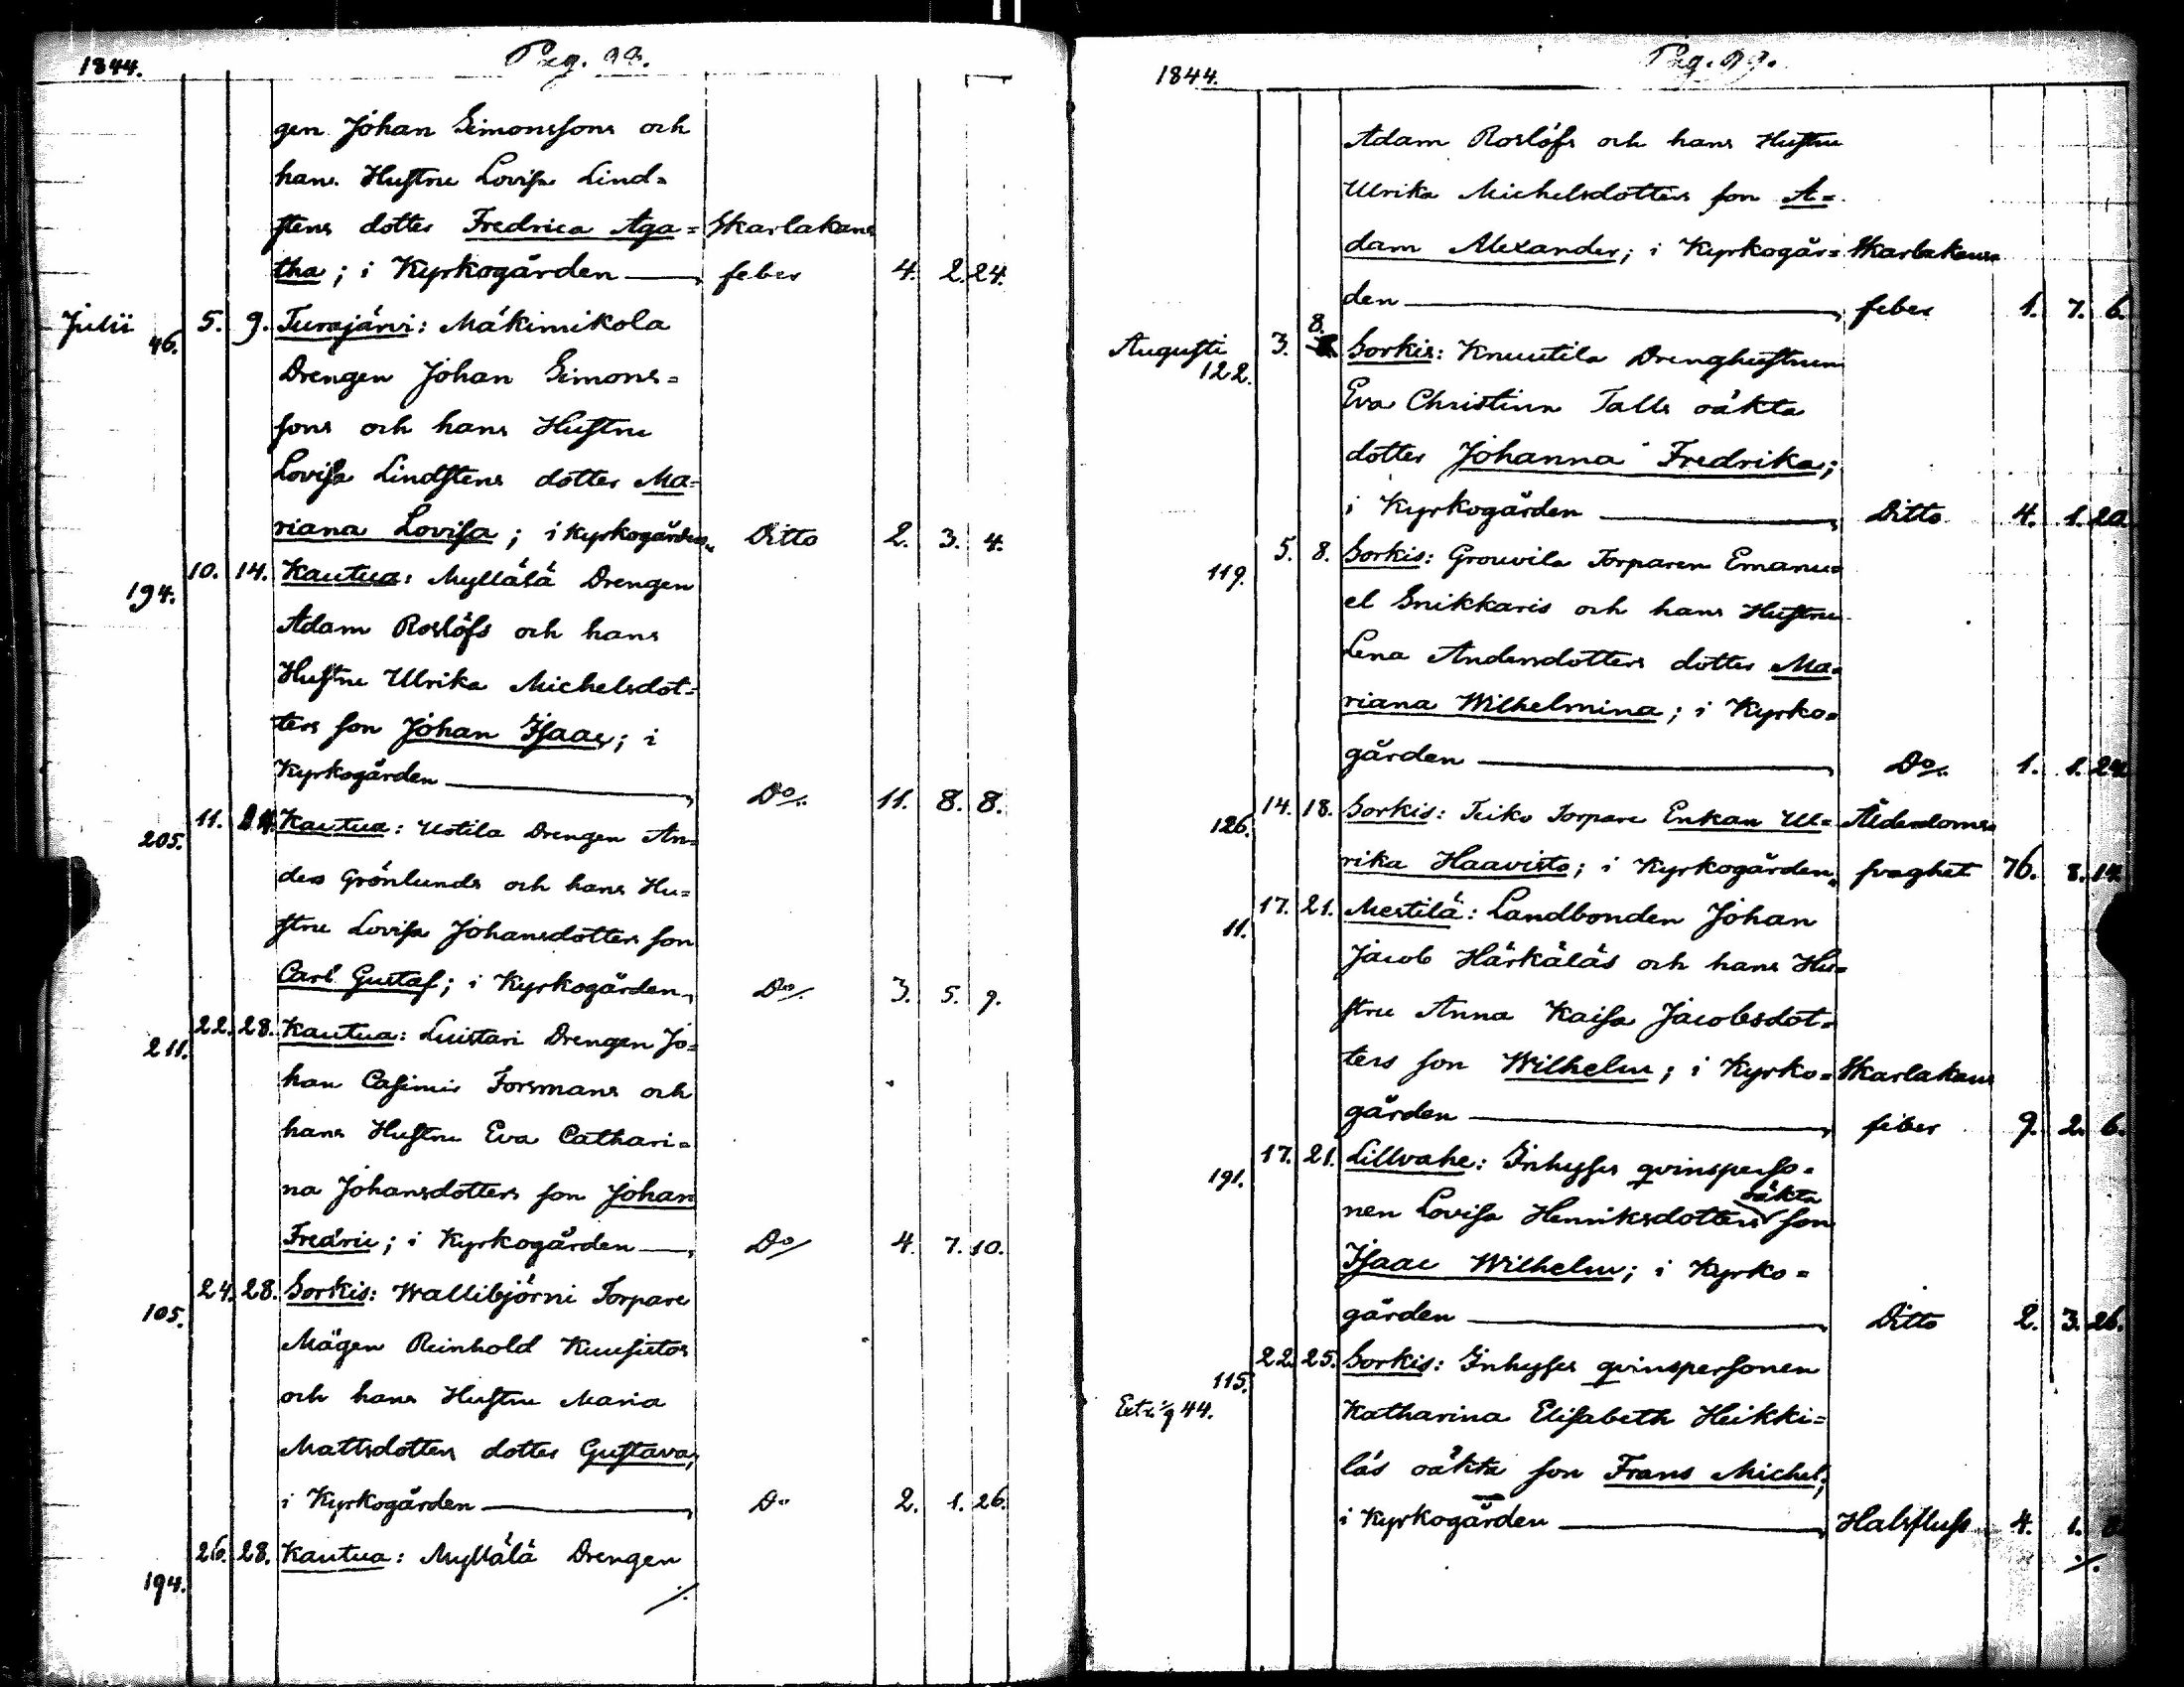 1844.
gen Johan Simonssons och
hans Hustru Lovisa Lind=
stens dotter Fredrica Aga= Skarlakans
tha; i Kyrkogården — feber 4. 2. 24.
Julii 46. 5. 9. Turajärvi: Mäkimikola
Drengen Johan Simons=
sons och hans Hustru
Lovisa Lindstens dotter Ma=
riana Lovisa; i Kyrkogården. Ditto 2. 3. 4.
194. 10. 14. Kautua: Myllälä Drengen
Adam Roslöfs och hans
Hustru Ulrika Michelsdot=
ters son Johan Isaac; i
Kyrkogården — Do/. 11. 8. 8.
205. 11. 14. Kautua: Ustila Drengen An=
ders Grönlunds och hans Hu=
stru Lovisa Johansdotters son
Carl Gustaf; i Kyrkogården, Do/. 3. 5. 9.
211. 22. 28. Kautua: Luistari Drengen Jo=
han Casimir Forsmans och
hans Hustru Eva Cathari=
na Johansdotters son Johan
Fredric; i Kyrkogården — Do/ 4. 7. 10.
105. 24. 28. Sorkis: Wallibjörni Torpare
Mågen Reinhold Kuusistos
och hans Hustru Maria
Mattsdotters dotter Gustava;
i Kyrkogården — Do 2. 1. 26.
194. 26. 28. Kautua: Myllälä Drengen
./.
Pag. 99.
1844.
Adam Roslöfs och hans Hustru
Ulrika Michelsdotters son A=
dam Alexander; i Kyrkogår= Skarlakans
den — feber 1. 7. 6.
Augusti 122. 3. 8. Sorkis: Knuutila Drenghustrun
Eva Christina Talls oäkta
dotter Johanna Fredrika;
i Kyrkogården — Ditto 4. 1. 20.
119. 5. 8. Sorkis: Grouvila Torparen Emanu=
el Snikkaris och hans Hustru
Lena Andersdotters dotter Ma=
riana Wilhelmina; i Kyrko=
gården — Do/. 1. 1. 24.
126. 14. 18. Sorkis: Teiko Torpare Enkan Ul= Ålderdoms
rika Haavisto; i Kyrkogården, svaghet 76. 8. 14.
11. 17. 21. Mestilä: Landbonden Johan
Jacob Härkäläs och hans Hu=
stru Anna Kaisa Jacobsdot=
ters son Wilhelm; i Kyrko= Skarlakans
gården — feber 9. 2. 6.
191. 17. 21. Lillvahe: Inhyses qvinsperso=
nen Lovisa Henriksdotters oäkta son
Isaac Wilhelm; i Kyrko=
gården — Ditto 2. 3. 26.
115. 22. 25. Sorkis: Inhyses qvinspersonen
Katharina Elisabeth Heikki=
läs oäkta son Frans Michel;
i Kyrkogården — Halsfluss 4. 1.
./.